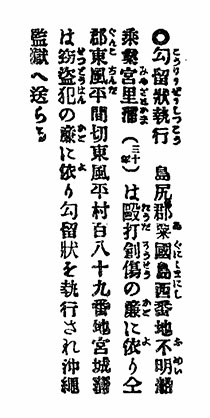 〇勾留狀執行　島尻郡粟國島西番地不明船
乘業宮里蒲（三十年）は毆打創傷の廉に依り仝
郡東風平間切東風平村百八十九番地宮城蒲
は竊盜犯の廉に依り勾留狀を執行され沖繩
監獄へ送らる